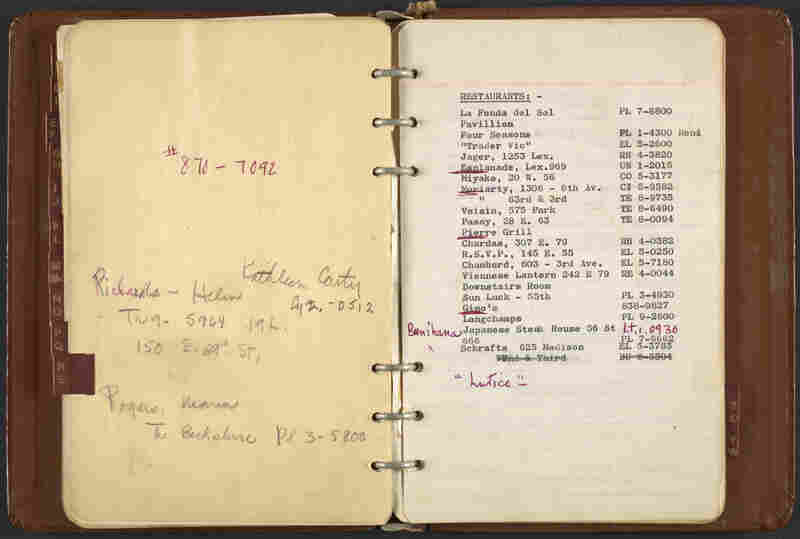 # 870 - 7092
Kathleen Carty
Richards - Helen
Ag 2. - 0512
TW 9 - 5964 19 L.
150 E. 69th St,
Rogers,
The Berkshire Pl 3-5800
RESTAURANTS: -
La Fonda del Sol PL 7-8800
Pavillion
Four Seasons PL 1-4300 René
"Trader Vic" EL 5-2600
Jager, 1253 Lex. RH 4-3820
Esplanade, Lex.969 UN 1-2015
Miyako, 20 W. 56 CO 5-3177
Moriarty, 1306 - 6th Av. CI 5-9582
" 63rd & 3rd TE 8-9735
Voisin, 575 Park TE 8-6490
Passy, 28 E. 63 TE 8-0094
Pierre Grill
Chardas, 307 E. 79 RH 4-0382
R.S.V.P., 145 E. 55 EL 5-0250
Chambord, 803 - 3rd Ave. EL 5-7180
Viennese Lantern 242 E 79 RE 4-0044
Downstairs Room
Sun Luck - 55th PL 3-4930
Gino's 838-9827
Langchamps PL 9-2600
Benihana Japanese Steak House 56 St Lt, 1.0930
666 PL 7-6662
Schrafts 625 Madison EL 5-3783
& Third
"Lutice"